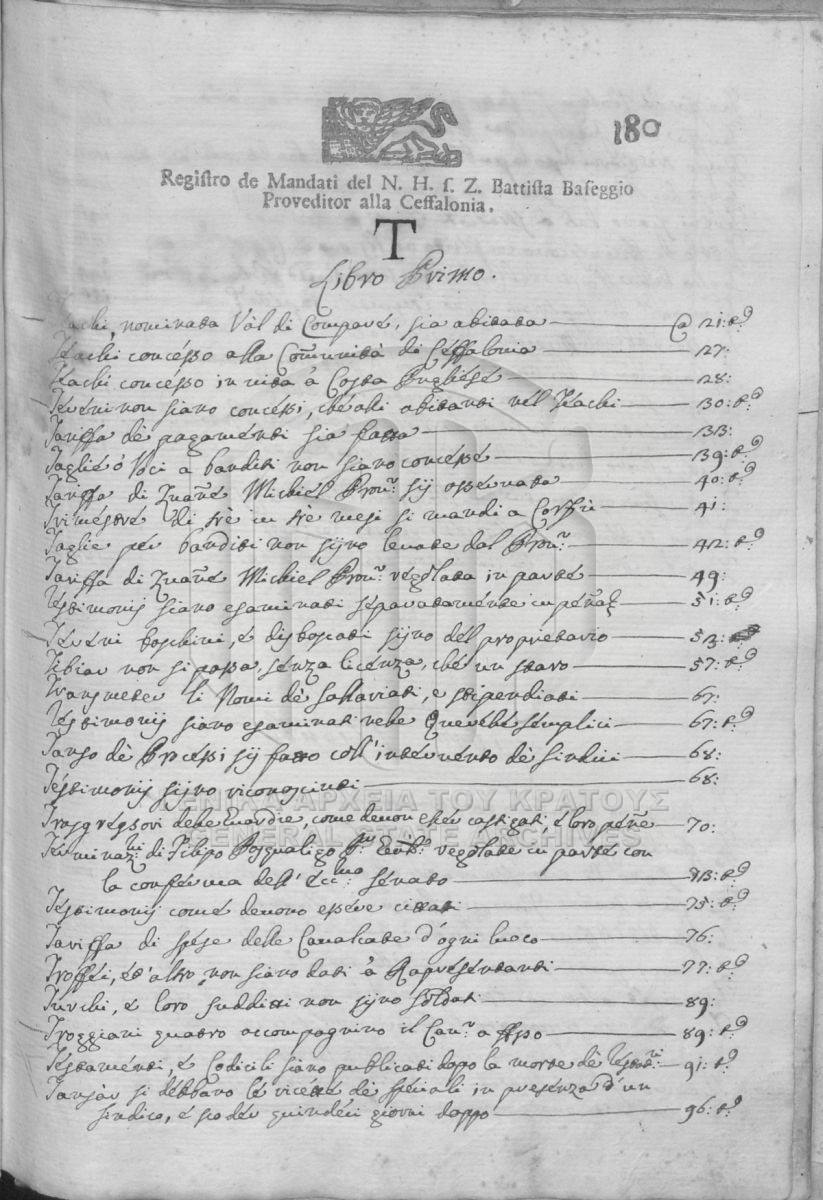 180
Registro de Mandati del N. H. s. Z. Battista Baseggio
Proveditor alla Ceffalonia.
T
Libro Primo.
Teachi, nominada Val di Compare, sia abitada 21: t.º
Teachi concesso alla Comunità di Ceffalonia 27:
Teachi concesso in vita à Costa Pugliese 28:
Terreni non siano concessi, che alli abitanti nel Teachi 30: t.º
Tariffa de pagamenti sia fatta 33:
Taglie ò Voci a banditi non siano concesse 39: t.º
Tariffa di Zuane Michiel Prov.r sij osservata 40: t.º
Trimestre di trè in trè mesi si mandi a Corfù 41:
Taglie per banditi non sijno levate dal Prov.r 42: t.º
Tariffa di Zuane Michiel Prov.r regolata in parte 49:
Testimonij siano esaminati separatamente in 51: t.º
Terreni boschivi, e disboscati sijno del proprietario 53:
Tibiar non si possa, senza licenza, che un staro 57: t.º
Trasmeter li Nomi de sallariati, e stipendiati 67:
Testimonij siano esaminati nelle Querele semplici 67: t.º
Tanso de Processi sij fatto coll'intervento de Sindici 68:
Testimonij sijno riconosciuti 68:
Trasgressori delle Guardie, come devon esser castigati, e loro pene 70:
Terminaz.ni di Filipo Pasqualigo regolate in parte con
la conferma dell' Ecc.mo Senato 73: t.º
Testimonij come devono essere cittati 75: t.º
Tariffa di spese delle Cavalcate d'ogni luoco 76.
Troffei, et altro, non siano dati à Rapresentanti 77: t.º
Turchi, e loro sudditi non sijno soldati 89:
Troggiani quatro accompagnino il Cam.r a Asso 89: t.º
Testamenti, e Codicili siano publicati dopo la morte de 91: t.º
Tansar si debbano le ricette de speciali in presenza d'un
Sindico, e scoder quindeci giorni doppo 96: t.º
ΓΕΝΙΚΑ ΑΡΧΕΙΑ ΤΟΥ ΚΡΑΤΟΥΣ
GENERAL STATE ARCHIVES